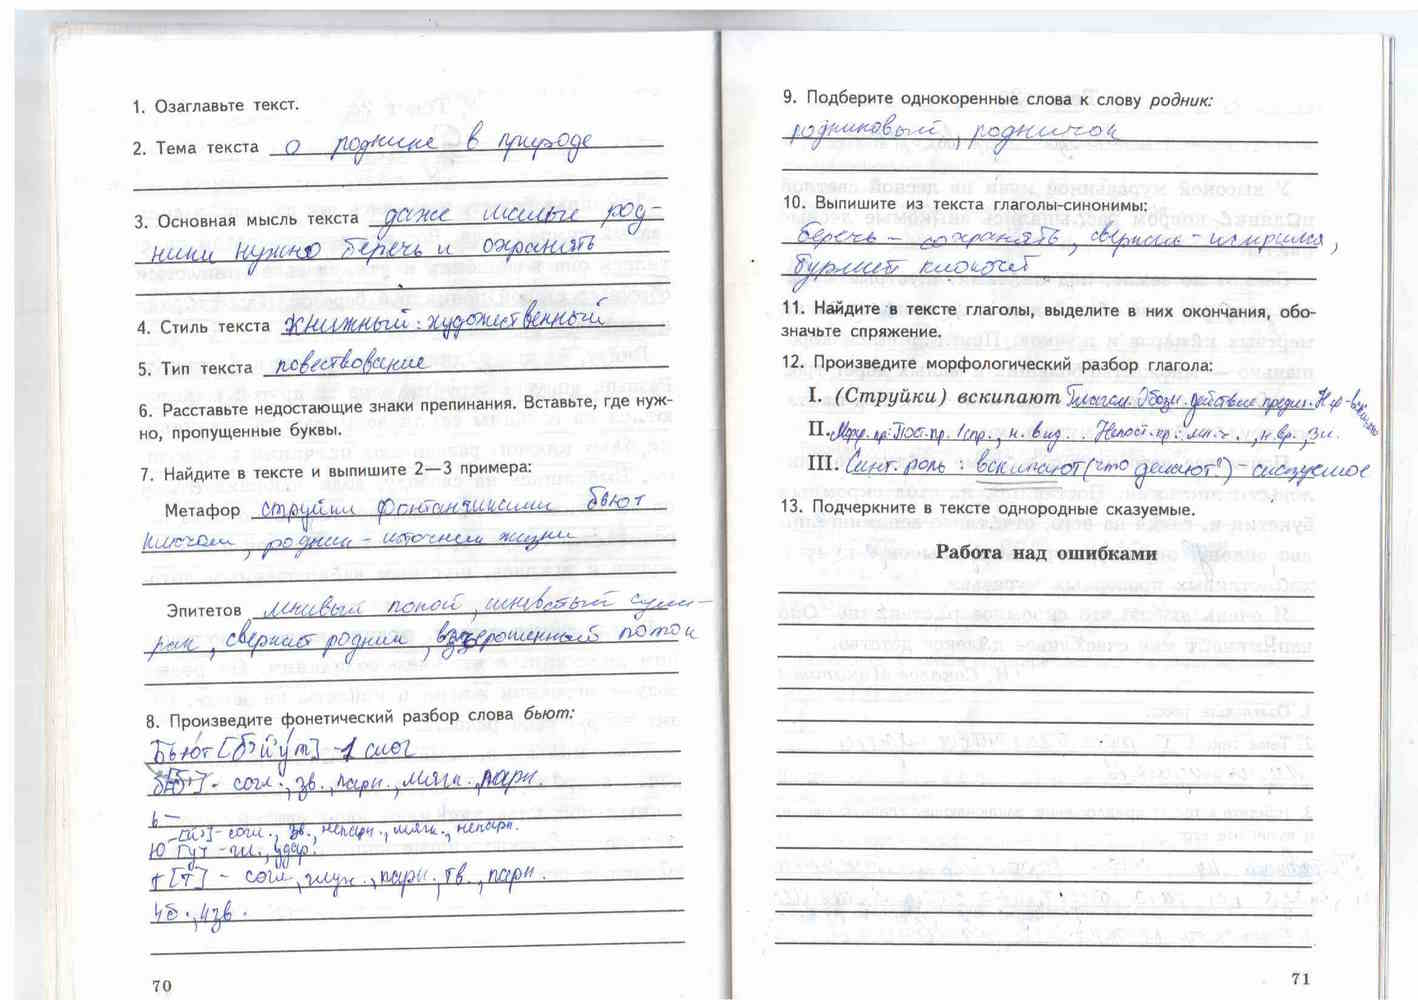 1. Озаглавьте текст.
2. Тема текста о роднике в природе
3. Основная мысль текста даже малые род-
ники нужно беречь и охранять
4. Стиль текста книжный: художественный
5. Тип текста повествование
6. Расставьте недостающие знаки препинания. Вставьте, где нуж-
но, пропущенные буквы.
7. Найдите в тексте и выпишите 2—3 примера:
Метафор струйки фонтанчиками бьют
ключом, родник - источник жизни
Эпитетов покой,
рак, родник, взъерошенный поток
8. Произведите фонетический разбор слова бьют:
Бьют [б'й'ут] - 1 слог
б [б'] - согл., зв., парн., мягк., парн.
ь —
[й'] - согл., зв., непарн., мягк., непарн.
ю [у] - гл., удар.
т [т] - согл., глух., парн., тв., парн.
4б., 4зв.
70
9. Подберите однокоренные слова к слову родник:
родниковый, родничок
10. Выпишите из текста глаголы-синонимы:
беречь - сохранять,
бурлит клокочет
11. Найдите в тексте глаголы, выделите в них окончания, обо-
значьте спряжение.
12. Произведите морфологический разбор глагола:
I. (Струйки) вскипают Глагол. Обозн. действие предм. Н.ф -
II. Морф. пр: Пост. пр. 1 спр., н. вид. Непост. пр: мн. ч., н. вр., 3 л.
III. Синт. роль: вскипают (что делают?) - сказуемое
13. Подчеркните в тексте однородные сказуемые.
Работа над ошибками
71